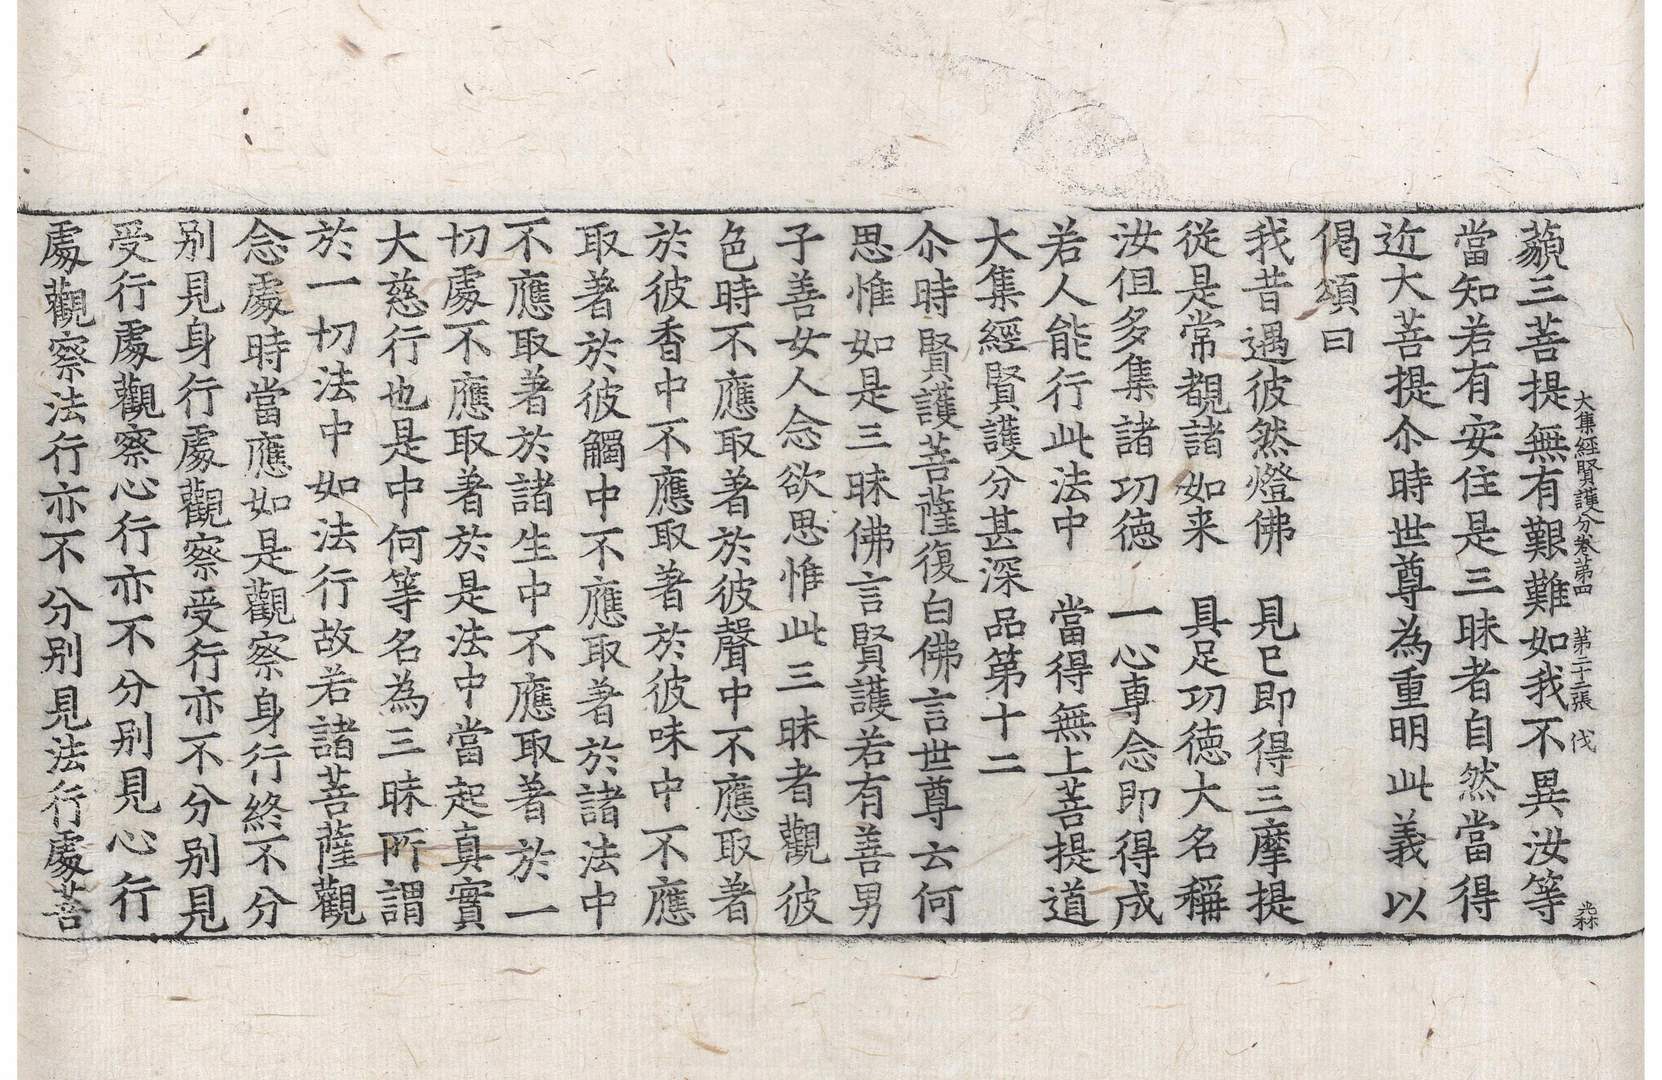 大集經賢護分卷第四　第二十二張　伐
藐三菩提無有艱難如我不異汝等
當知若有安住是三昧者自然當得
近大菩提尒時世尊為重明此義以
偈頌曰
我昔遇彼然燈佛　見已即得三摩提
從是常覩諸如来　具足功徳大名稱
汝但多集諸功徳　一心專念即得成
若人能行此法中　當得無上菩提道
大集經賢護分甚深品第十二
尒時賢護菩薩復白佛言世尊云何
思惟如是三昧佛言賢護若有善男
子善女人念欲思惟此三昧者觀彼
色時不應取著於彼聲中不應取著
於彼香中不應取著於彼味中不應
取著於彼觸中不應取著於諸法中
不應取著於諸生中不應取著於一
切處不應取著於是法中當起真實
大慈行也是中何等名為三昧所謂
於一切法中如法行故若諸菩薩觀
念處時當應如是觀察身行終不分
别見身行處觀察受行亦不分别見
受行處觀察心行亦不分别見心行
處觀察法行亦不分别見法行處菩